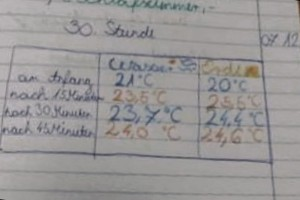 30. Stunde
07.12
am Anfang 21°C 20°C
nach 15 Minuten 23,5°C 23,5°C
nach 30 Minuten 23,7°C 24,4°C
nach 45 Minuten 24,0 °C 24,6°C